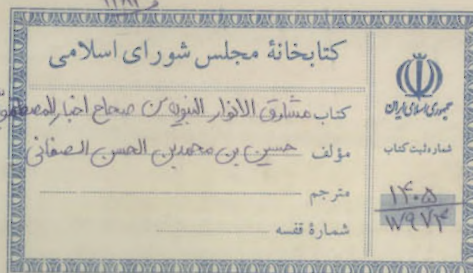 کتابخانهٔ مجلس شورای اسلامی
کتاب مشارق الانوار النبویه من صحاح اخبار المصطفویه
مؤلف حسین بن محمد بن الحسن الصغانی
مترجم
شمارهٔ قفسه
جمهوری اسلامی ایران
شماره ثبت کتاب
۱۴۰۵